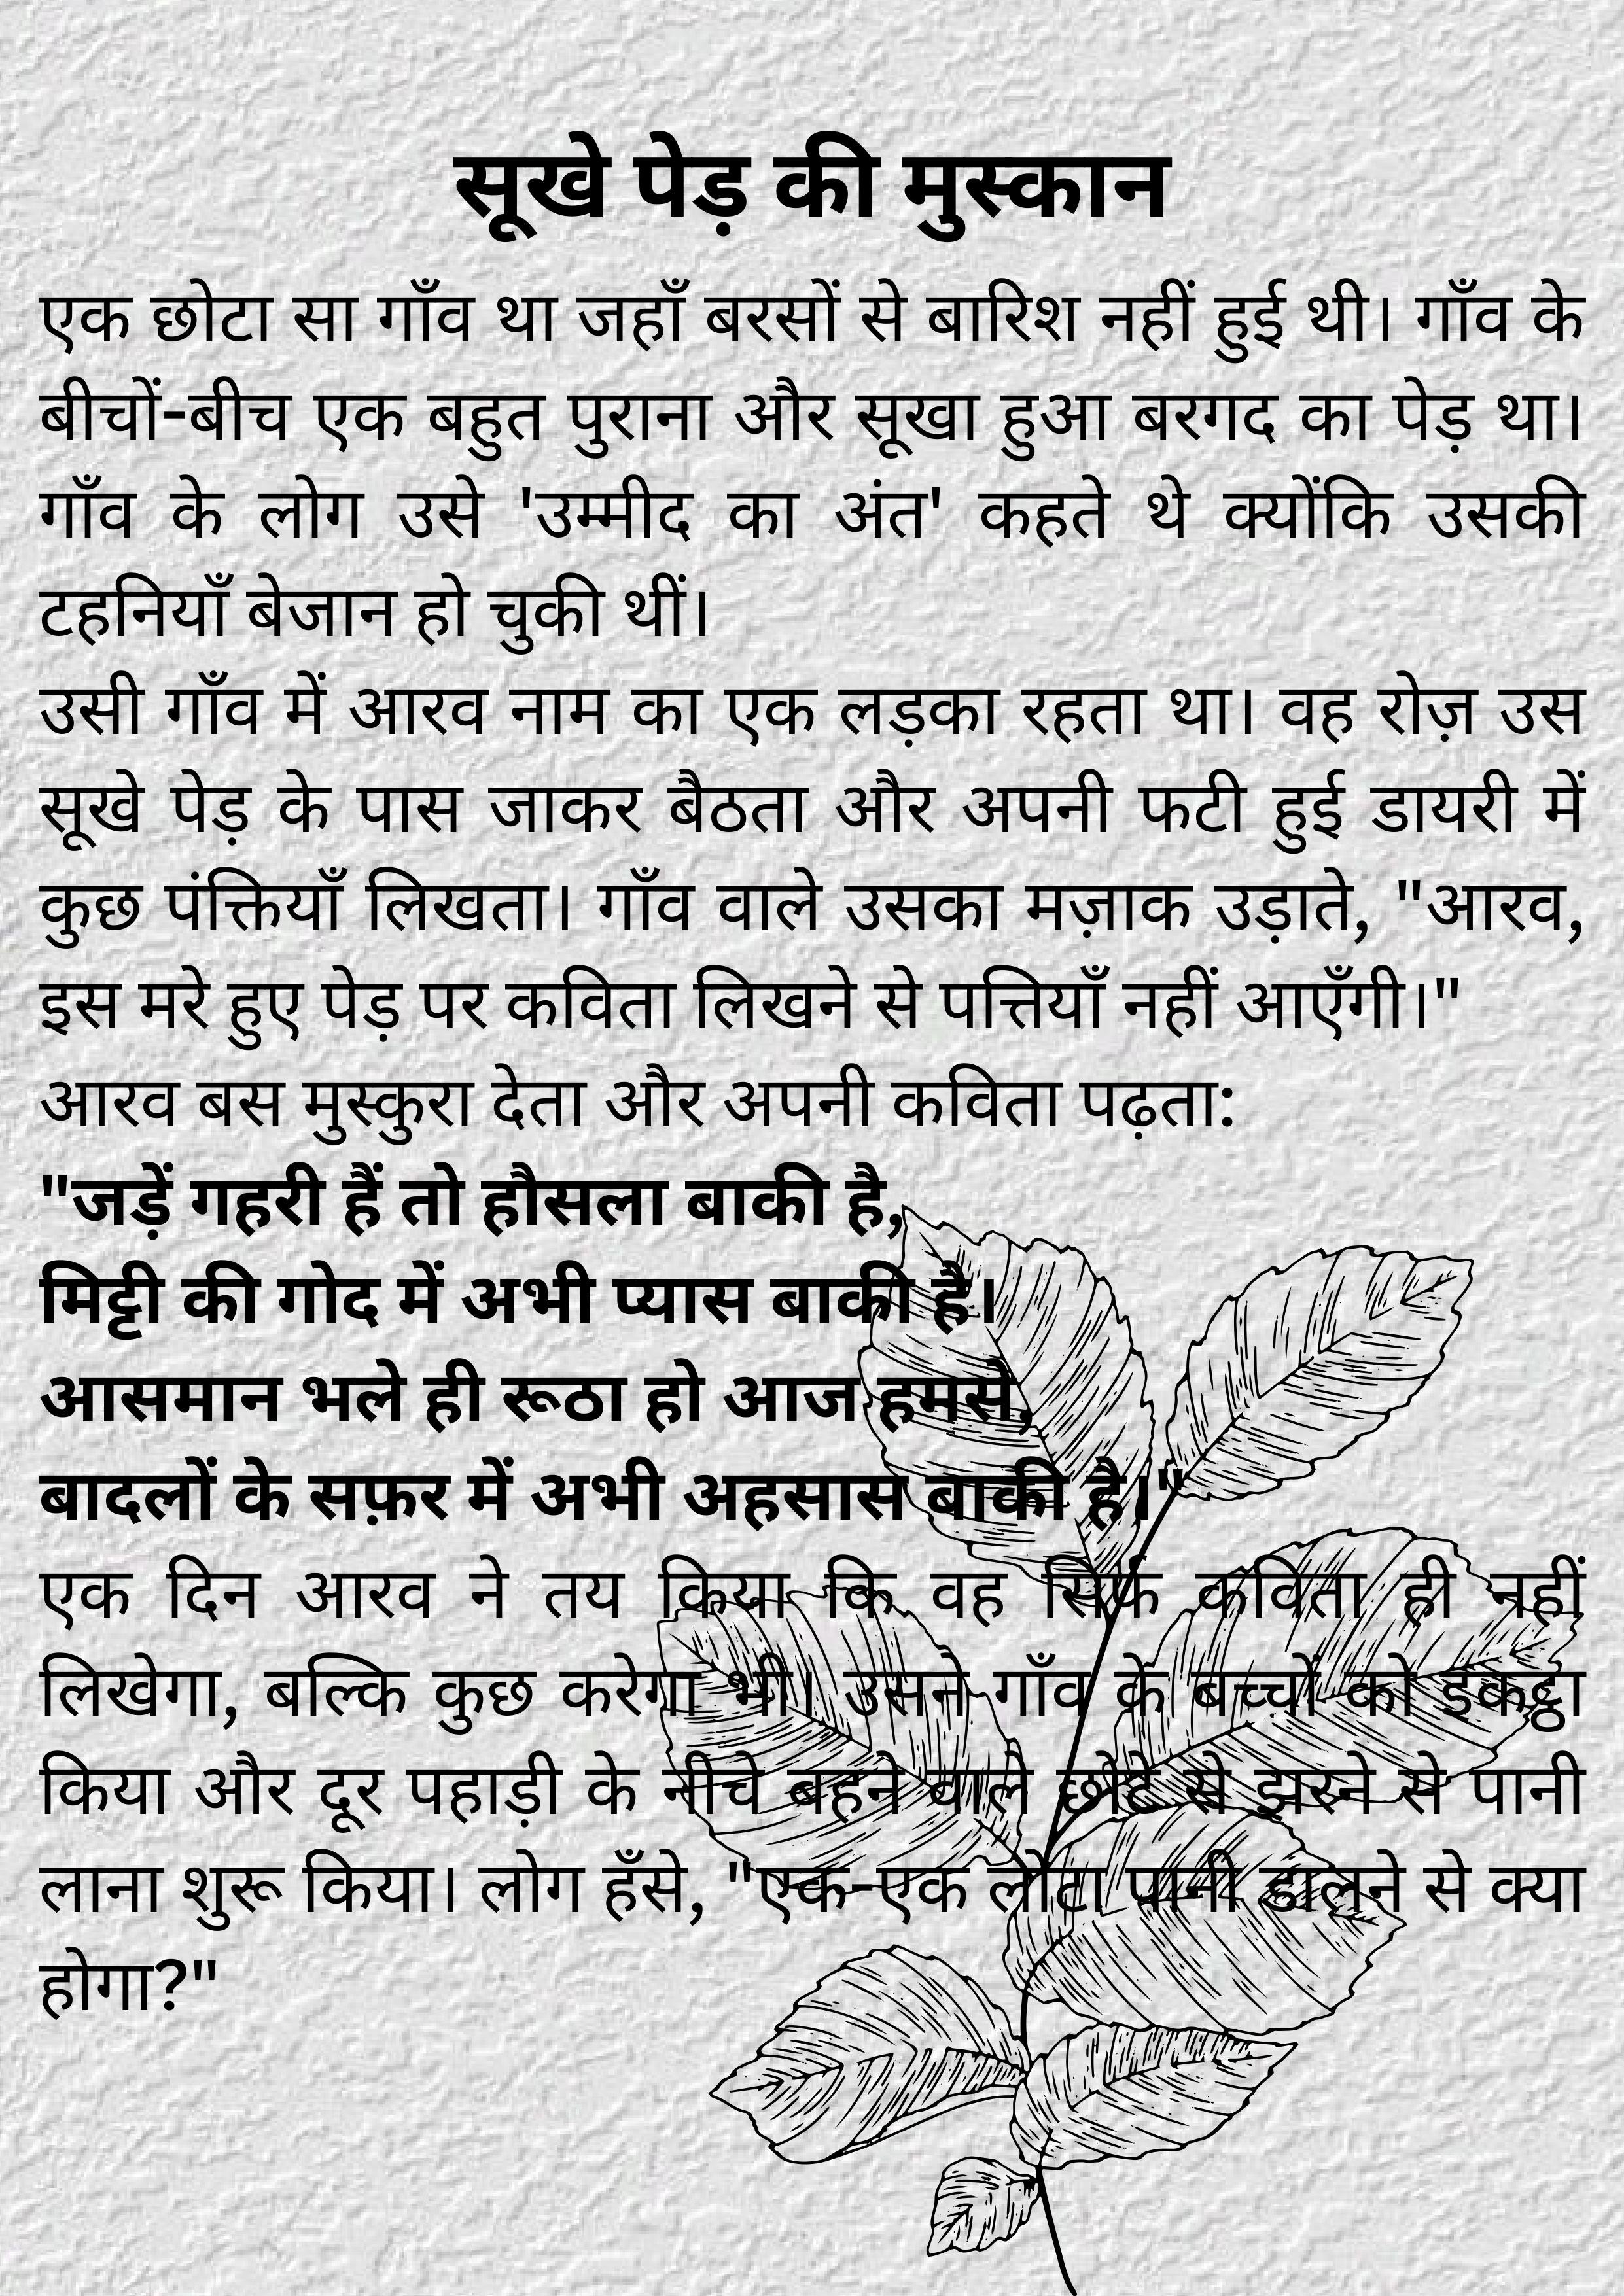 सूखे पेड़ की मुस्कान
एक छोटा सा गाँव था जहाँ बरसों से बारिश नहीं हुई थी। गाँव के
बीचों-बीच एक बहुत पुराना और सूखा हुआ बरगद का पेड़ था।
गाँव के लोग उसे 'उम्मीद का अंत' कहते थे क्योंकि उसकी
टहनियाँ बेजान हो चुकी थीं।
उसी गाँव में आरव नाम का एक लड़का रहता था। वह रोज़ उस
सूखे पेड़ के पास जाकर बैठता और अपनी फटी हुई डायरी में
कुछ पंक्तियाँ लिखता। गाँव वाले उसका मज़ाक उड़ाते, "आरव,
इस मरे हुए पेड़ पर कविता लिखने से पत्तियाँ नहीं आएँगी।"
आरव बस मुस्कुरा देता और अपनी कविता पढ़ता:
"जड़ें गहरी हैं तो हौसला बाकी है,
मिट्टी की गोद में अभी प्यास बाकी है।
आसमान भले ही रूठा हो आज हमसे,
बादलों के सफ़र में अभी अहसास बाकी है।"
एक दिन आरव ने तय किया कि वह सिर्फ कविता ही नहीं
लिखेगा, बल्कि कुछ करेगा भी। उसने गाँव के बच्चों को इकट्ठा
किया और दूर पहाड़ी के नीचे बहने वाले छोटे से झरने से पानी
लाना शुरू किया। लोग हँसे, "एक-एक लोटा पानी डालने से क्या
होगा?"